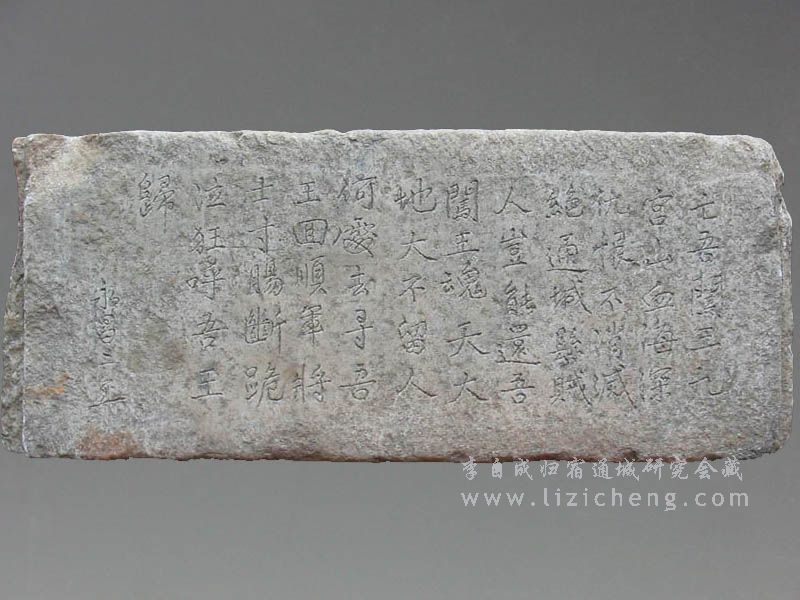 亡吾闖王九
宮山血海深
仇恨不消滅
絕通城縣賊
人豈能還吾
闖王魂天大
地大不留人
何處去尋吾
王囬順軍將
士寸腸斷跪
泣狂嘑吾王
歸
永昌三年
李自成归宿通城研究会藏
www.lizicheng.com